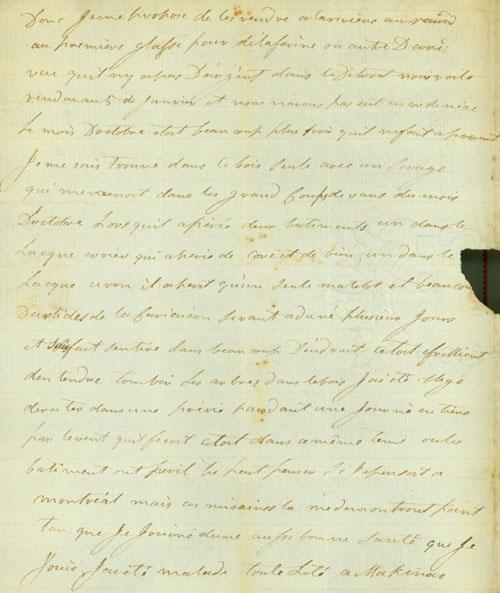 Donc Je me propose de les vendre a la riviere au raind
au première glasse pour de la farine ou autre Danré
veu quil ny a pas D'argent dans le Detroit nous voila
rendu au 5 de Janvier et nous navons pas eut encor de neige
Le mois D'octobre etoit beaucoup plus frois quil ne fait a present
Je me sais trouvé dans le bois Seule avec un Sovage
qui me menoit dans les grand Coups de vans du mois
D'octobre Lors quil a perié deux batiments un dans le
Lacque eriér qui a perie de Cor et de bien, un dans le
Lacque uron il a perit qu'un Seule matelot et beaucou
D'artides de la Cariaison Le vant a duré plusieur Jours
et fait sentire dans beaucoup D'endroit, cetoit effreillient
d'entendre tomber Les arbres dans le bois J'ai été obligé
de rester dans une prérié pandant une Journé en tiere
pas le vent quil fesoit etoit dans ce même tems ou les
batiment ont pevil tu peut penser Si Je pensoit a
montréal mais ces misaires la me demontront point
tan que Je Jouiré dune aussi bonne Santé que Je
Jouis J'ai été malade toute L'été a Makinac